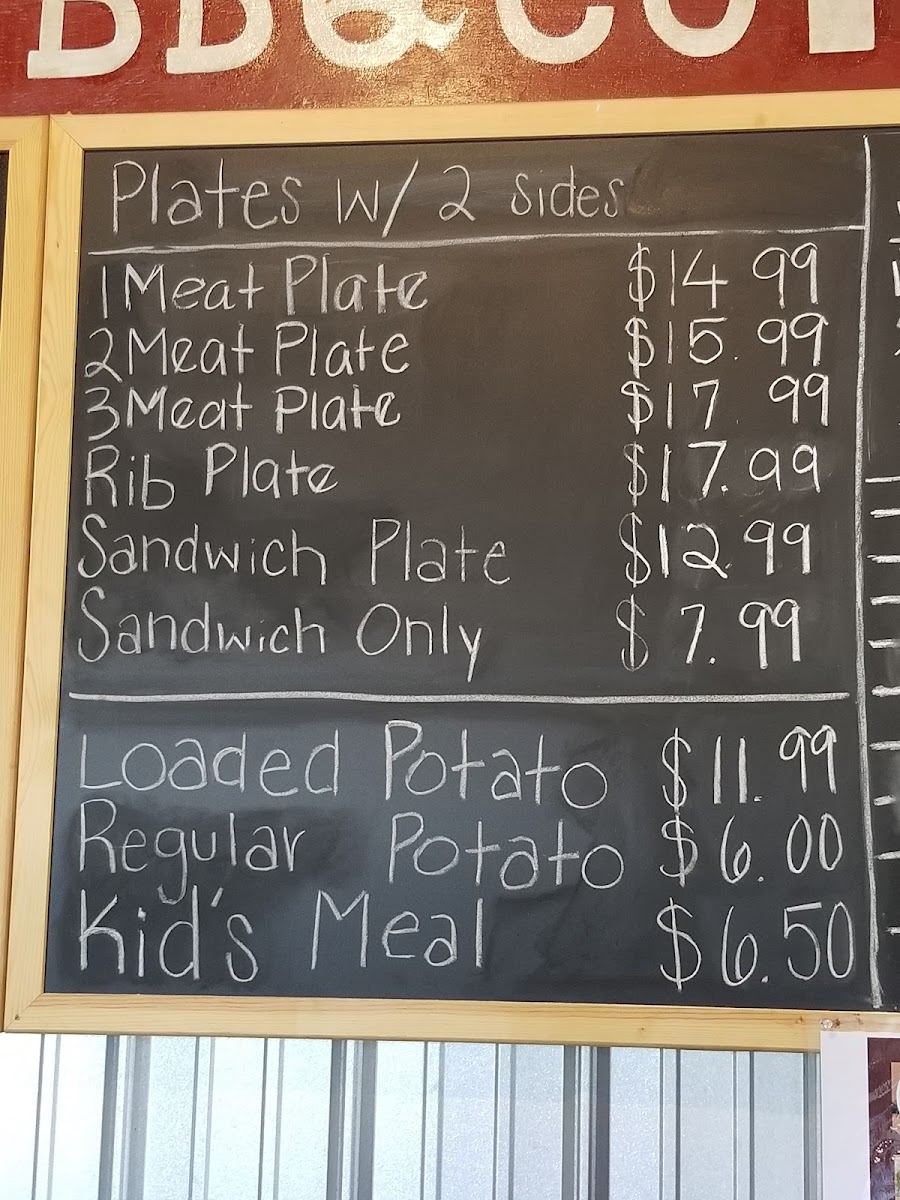 Plates w/ 2 sides
1 Meat Plate $14 99
2 Meat Plate $15.99
3 Meat Plate $17 99
Rib Plate $17.99
Sandwich Plate $12.99
Sandwich Only $7.99
Loaded Potato $11.99
Regular Potato $6.00
Kid's Meal $6.50